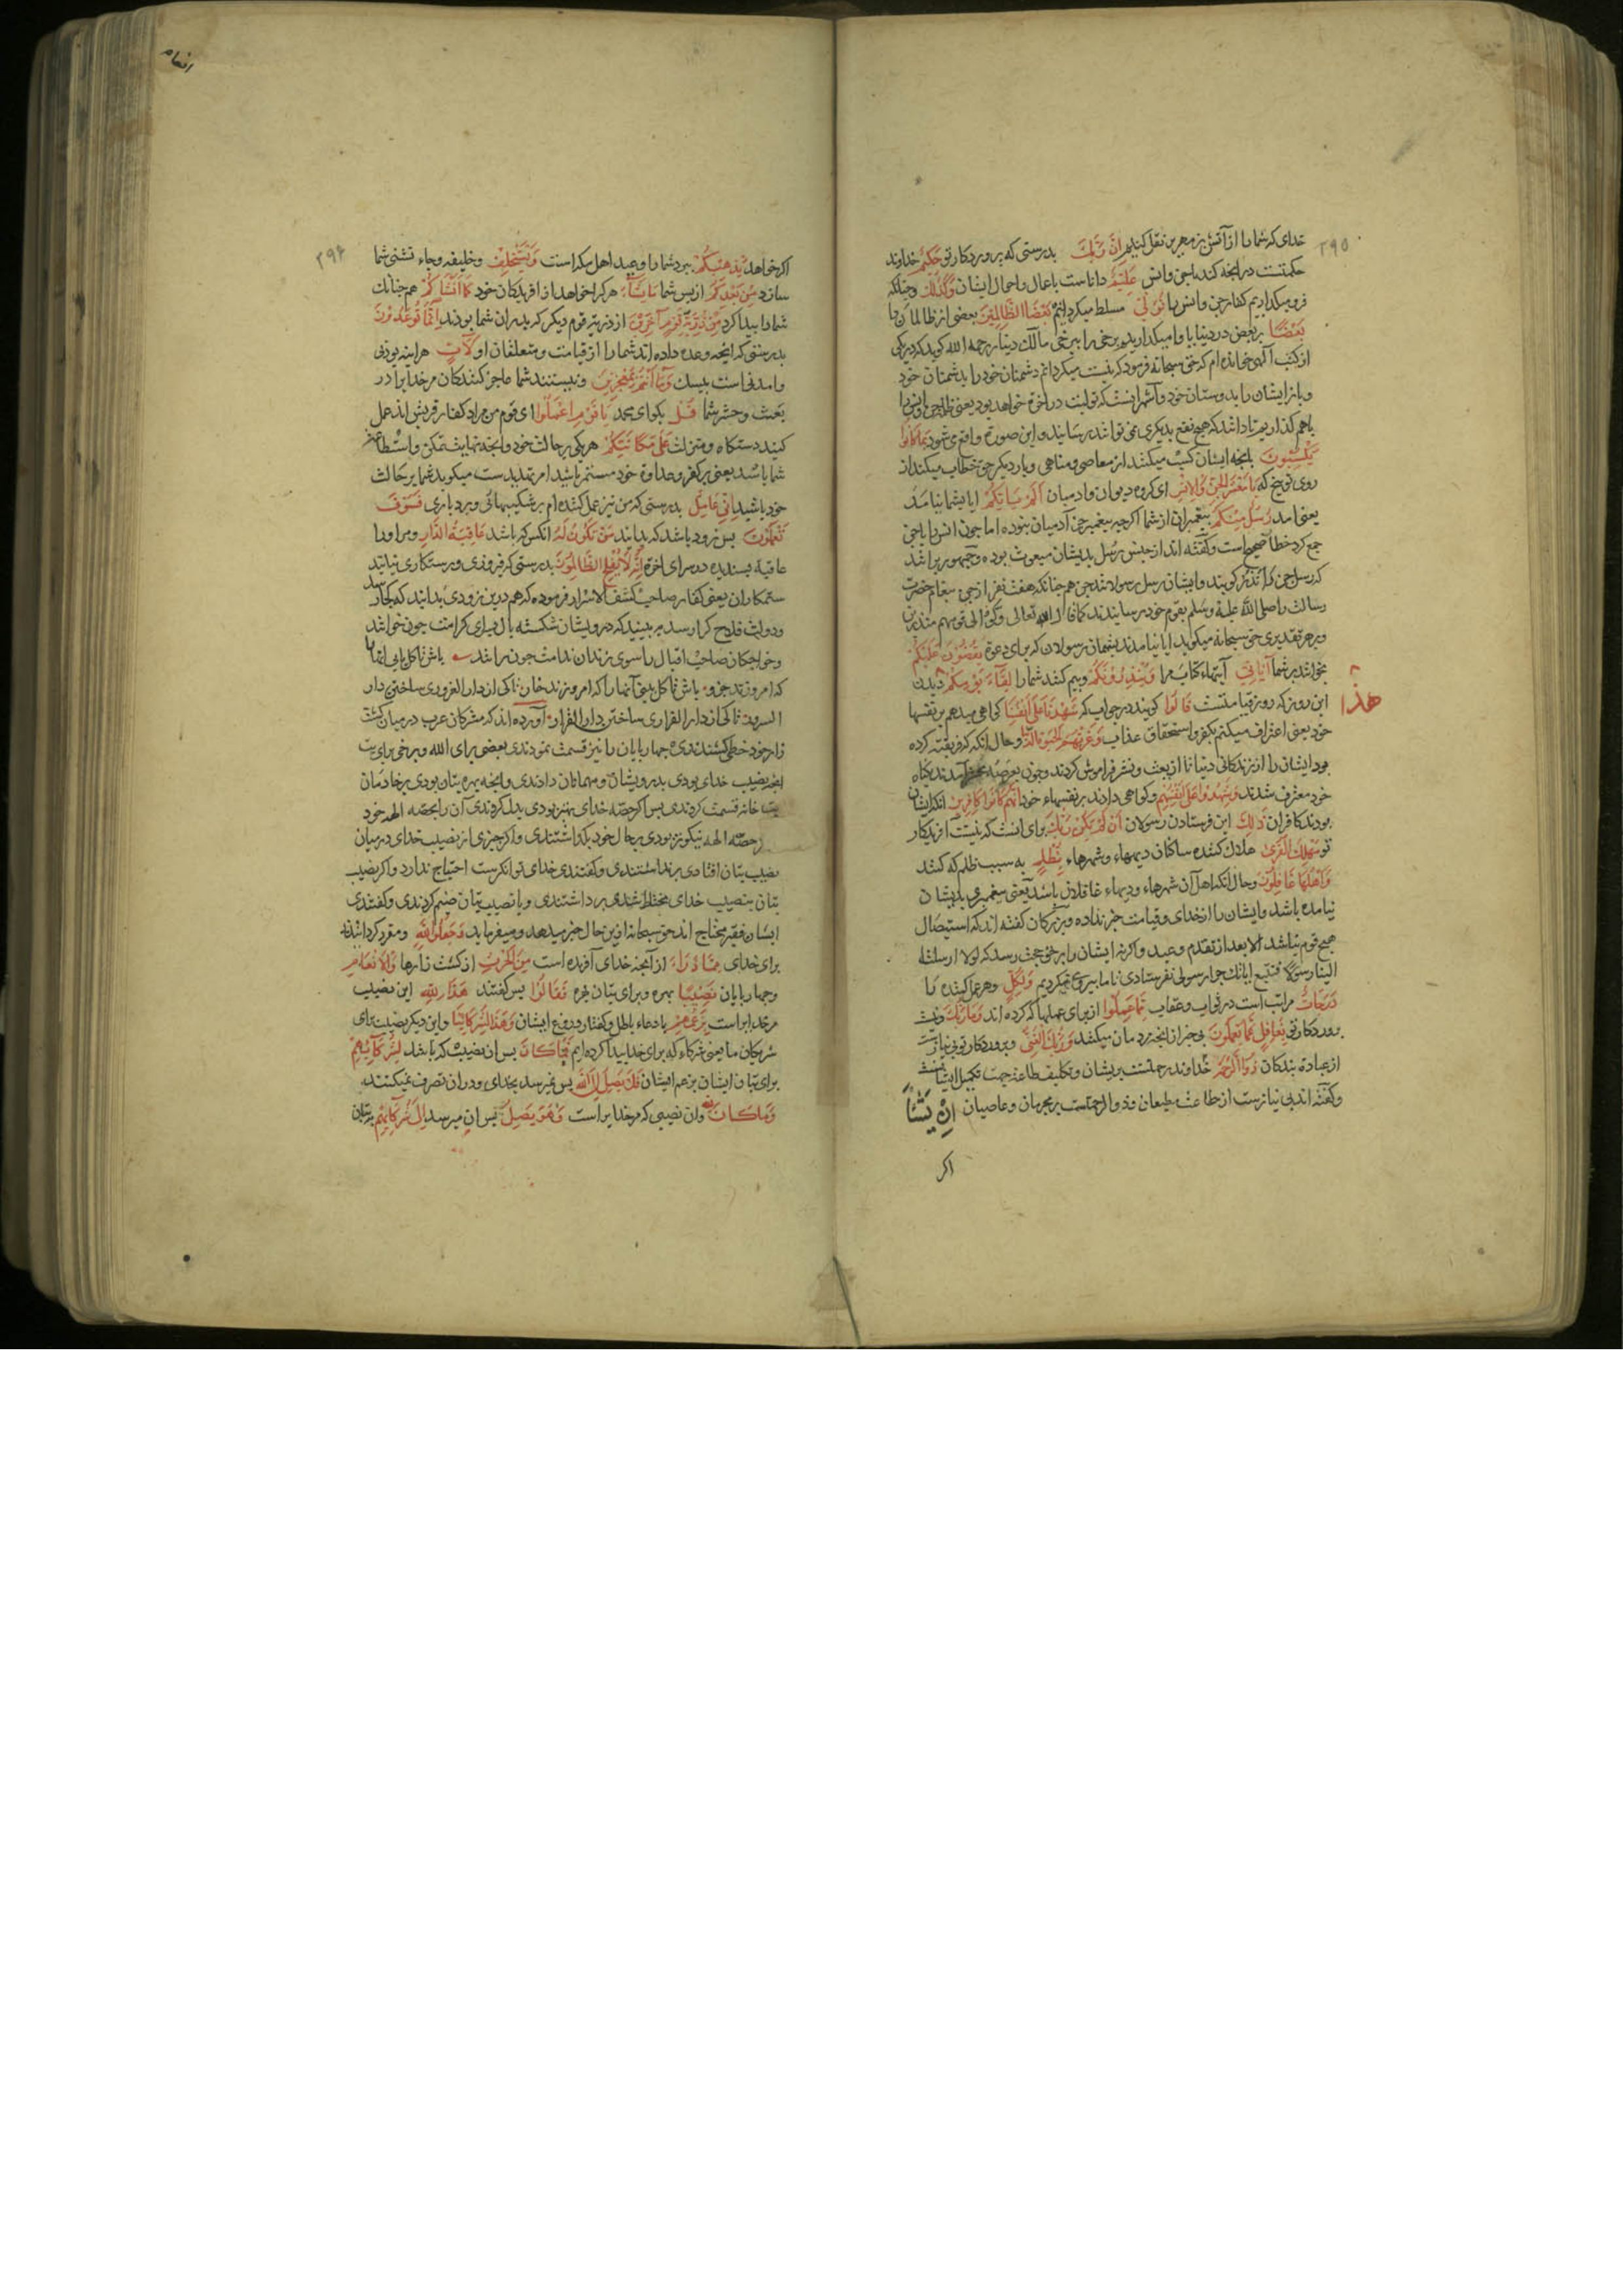 ۲۹۵
خدای که شما را از آتش بزمهریر نقل کند اِنَّ رَبَّكَ بدرستی که پروردکار تو حَكِيمٌ خداوند
حکمتست در انجه کند باجن وانس عَلِيمٌ داناست باعمال واحوال ایشان وَكَذٰلِكَ وچنانکه
فرو میکذاریم کفار جن وانس را نُوَلِّى مسلط میکردانیم بَعْضَ الظَّالِمِيْنَ بعضی از ظالمان را
بَعْضًا ببعض در دنیا یا وامیکذاریم برخی را ببرخی مالک دینار رحمه الله کوید که در یکی
از کتب آلهی خوانده ام که حق سبحانه فرمود که بدرست میکردانم دشمنان خود را بدشمنان خود
وبازایشان را بدوستان خود
باهم کذاریم تا داشد که هیچ نفع بدیکری نمی توانند رسانید واین صورة واقع می شود بِمَا كَانُوا
يَكْسِبُونَ بانجه ایشان کسب میکنند از معاصی ومناهی وبار دیکر حق خطاب میکند از
روی توبیخ که يَا مَعْشَرَ الْجِنِّ وَالْاِنْسِ ای کروه دیوان وادمیان اَلَمْ يَأْتِكُمْ ایا بشما نیامد
یعنی امد رُسُلٌ مِنْكُمْ پیغمبرانی از شما اکرچه پیغمبر جن آدمیان بوده اما چون انس را باجن
جمع کرد خطاب صحیح است وکفته اند از جنس رسل بدیشان مبعوث بوده وجمهور برانند
که رسل جن را نُذُر کویند وایشان رسل رسولانند بجن هم چنانکه هفت نفر از جن پیغام حضرت
رسالت را صلی الله علیه وسلم بقوم خود رسانیدند کما قال الله تعالی ولّوا الی قومهم منذرین
وبر هر تقدیری حق سبحانه میکوید ایا نیامدند بشمان رسولان که برای دعوة يَقُصُّوْنَ عَلَيْكُمْ
بخوانند بر شما اٰيَاتِى آیتهاء کتاب مرا وَيُنْذِرُوْنَكُمْ وبیم کنند شما را لِقَآءَ يَوْمِكُمْ دیدن
هٰذَا
این روز که روز قیامتست قَالُوا کویند در جواب که شَهِدْنَا عَلٰى اَنْفُسِنَا کواهی میدهیم بر نفسها
خود یعنی اعتراف میکنیم بکفر واستحقاق عذاب وَغَرَّتْهُمُ الْحَيٰوةُ الدُّنْيَا وحال انکه که فریفته کرده
بود ایشان را زندکانی دنیا تا از بعث ونشر فراموش کردند وچون بعرصه محشر آمدند بکناه
خود معترف شدند وَشَهِدُوْا عَلٰى اَنْفُسِهِمْ وکواهی دادند بر نفسهاء خود اَنَّهُمْ كَانُوا كَافِرِيْنَ انکه ایشان
بودند کافران ذٰلِكَ این فرستادن رسولان اَنْ لَمْ يَكُنْ رَبُّكَ برای انست که نیست آفریدکار
تو مُهْلِكَ الْقُرٰى هلاک کننده ساکنان دیهها وشهرهاء بِظُلْمٍ به سبب ظلم که کنند
وَاَهْلُهَا غَافِلُوْنَ وحال انکه اهل آن شهرهاء ودیهاء غافلان باشند یعنی پیغمبری بدیشان
نیامده باشد وایشان را از خدای وقیامت خبر نداده وبزرکان کفته اند که استیصال
هیچ قوم نباشد الا بعد از تقدم وعید واکرنه ایشان را بر حق حجت رسد که لولا ارسلت
الینا رسولاً فنتبع ایاتك چرا رسولی نفرستادی تا ما پیروی میکردیم وَلِكُلٍّ وهر عمل کننده را
دَرَجَاتٌ مراتب است در ثواب وعقاب مِمَّا عَمِلُوا از برای عملها که کرده اند وَمَا رَبُّكَ ونیست
پروردکار تو بِغَافِلٍ عَمَّا يَعْمَلُوْنَ بی خبر از انجه مردمان میکنند وَرَبُّكَ الْغَنِىُّ وپروردکار تو بی نیازست
از عبادة بندکان ذُوا الرَّحْمَةِ خداوند رحمتست بریشان وتکلیف طاعت جهت تکمیل ایشانست
وکفته اند بی نیازست از طاعت مطیعان وذو الرحمتست بر مجرمان وعاصیان اِنْ يَشَأْ
اکر
انعام
۲۹۶
اکر خواهد يُذْهِبْكُمْ ببرد شما را وعید اهل مکه است وَيَسْتَخْلِفْ وخلیفه وجاء نشین شما
سازد مِنْ بَعْدِكُمْ از پس شما مَا يَشَآءُ هرکرا خواهد از آفریدکان خود كَمَا اَنْشَاَكُمْ هم چنانک
شما را پیدا کرد مِنْ ذُرِّيَّةِ قَوْمٍ اٰخَرِيْنَ از ذریه قوم دیکر که پدران شما بودند اِنَّمَا تُوعَدُوْنَ
بدرستی که انجه وعده داده اند شما را از قیامت ومتعلقان او لَاٰتٍ هراینه بودنی
وامدنی است بیشك وَمَا اَنْتُمْ بِمُعْجِزِيْنَ ونیستند شما عاجز کنندکان مر خدایرا در
بعث وحشر شما قُلْ بکو ای محمد يَا قَوْمِ اعْمَلُوْا ای قوم من مراد کفار قریش اند عمل
کنید دستکاه ومنزلت عَلٰى مَكَانَتِكُمْ هریکی بر حالت خود وانجه نهایت تمکن واستطاعت
شما باشد یعنی بر کفر وعداوة خود مستمر باشید امر تهدیدست میکوید شما بر حالت
خود باشید اِنِّى عَامِلٌ بدرستی که من نیز عمل کننده ام بر شکیبهائی وبردباری فَسَوْفَ
تَعْلَمُوْنَ پس زود باشد که بدانید مَنْ تَكُوْنُ لَهُ انکس که باشد عَاقِبَةُ الدَّارِ ومر اورا
عاقبة پسندیده در سرای اخرة اِنَّهُ لَا يُفْلِحُ الظَّالِمُوْنَ بدرستی که فیروزی ورستکاری نیابند
ستمکاران یعنی کفار صاحب کشف الاسرار فرموده که هم درین زودی بدانید که کجا رسد
ودولت فلاح کرا رسد ببینید که درویشان شکسته بال سرای کرامت چون خواند
وخواجکان صاحب اقبال را سوی زندان ندامت چون رانند باش تا کل یابی انها را
که امروزند جزو باش تا کل بینی آنها را که امروزند خار تا کی از دار الغروری ساختن دار
السرور تا کی از دار الفراری ساختن دار القرار آورده اند که مشرکان عرب در میان کشت
زار خود خطی کشیدندی وچهارپایان را نیز قسمت نمودندی بعضی برای الله وبرخی برای بت
انجه نصیب خدای بودی بدرویشان ومهمانان دادندی وانجه بهره بتان بودی بر خادمان
بت خانه قسمت کردندی پس اکر حصّه خدای بهتر بودی بدل کردندی آن را بحصّه الهه خود
وحصّه الهه نیکوتر بودی بر حال خود بکذاشتندی واکر چیزی از نصیب خدای در میان
نصیب بتان افتادی برنداشتندی وکفتندی خدای توانکرست احتیاج ندارد واکر نصیب
بتان بنصیب خدای مختلط شدی برداشتندی وبا نصیب بتان ضم کردندی وکفتندی
ایشان فقیر ومحتاج اند حق سبحانه ازین حال خبر میدهد ومیفرماید وَجَعَلُوا لِلّٰهِ ومقرر کردانیدند
برای خدای مِمَّا ذَرَاَ از آنجه خدای آفریده است مِنَ الْحَرْثِ از کشت زارها وَالْاَنْعَامِ
وچهارپایان نَصِيْبًا بهره وبرای بتان بهره فَقَالُوا پس کفتند هٰذَا لِلّٰهِ این نصیب
مر خدایراست بِزَعْمِهِمْ بادعاء باطل وکفتار دروغ ایشان وَهٰذَا لِشُرَكَائِنَا واین دیکر نصیب برای
شریکان ما یعنی شرکاء که برای خدا پیدا کرده ایم فَمَا كَانَ پس ان نصیبی که باشد لِشُرَكَآئِهِمْ
برای بتان ایشان بزعم ایشان فَلَا يَصِلُ اِلَى اللهِ پس نمیرسد بخدای ودران تصرف نمیکنند
وَمَا كَانَ لِلّٰهِ وان نصیبی که مر خدایراست فَهُوَ يَصِلُ پس ان میرسد اِلٰى شُرَكَائِهِمْ ببتان